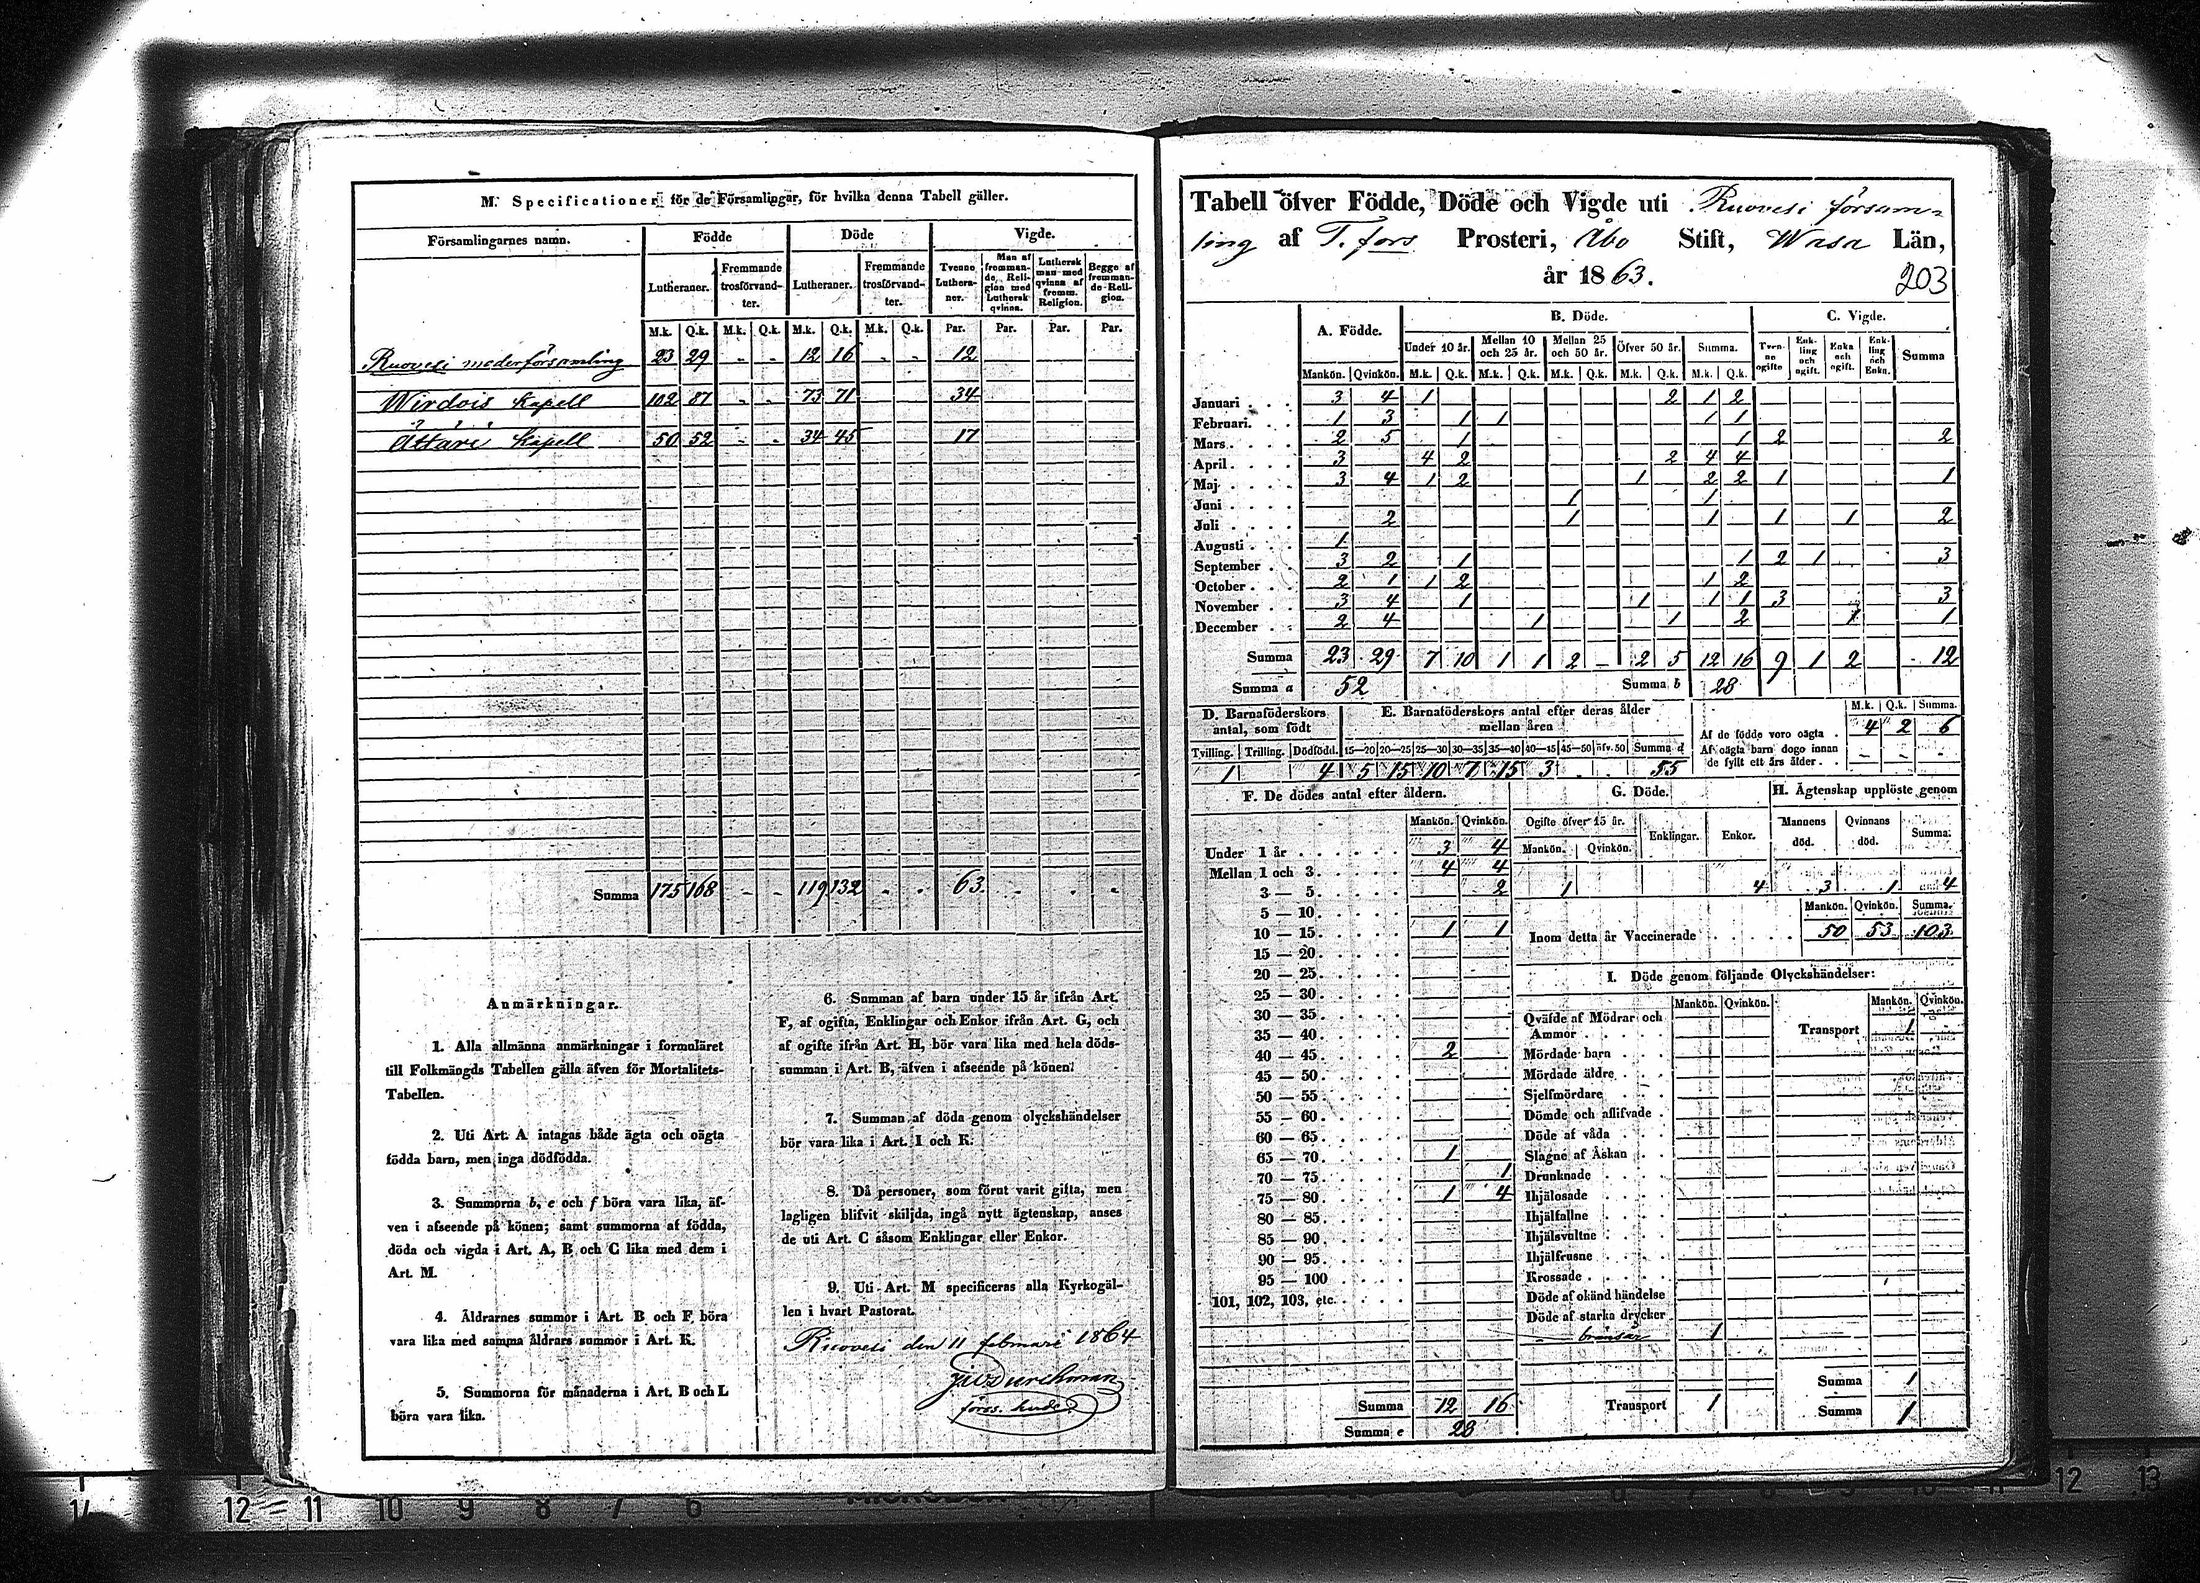 M. Specificationer för de Församlingar, för hvilka denna Tabell gäller.
Församlingarnes namn. Födde Döde Vigde.
Lutheraner. Fremmande trosförvandter. Lutheraner. Fremmande trosförvandter. Tvenne Lutheraner. Man af fremmande Religion med Luthersk qvinna. Luthersk man med qvinna af fremm. Religion. Begge af fremmande Religion.
M.k. Q.k. M.k. Q.k. M.k. Q.k. M.k. Q.k. Par. Par. Par. Par.
Ruovesi moderförsamling 23 29 - - 12 16 - - 12
Wirdois Kapell 102 87 - - 73 71 34
Ättäri Kapell 50 52 - - 34 45 17
Summa 175 168 - - 119 132 - - 63 - - -
Anmärkningar.
1. Alla allmänna anmärkningar i formuläret
till Folkmängds Tabellen gälla äfven för Mortalitets-
Tabellen.
2. Uti Art. A intagas både ägta och oägta
födda barn, men inga dödfödda.
3. Summorna b, e och f böra vara lika, äf-
ven i afseende på könen; samt summorna af födda,
döda och vigda i Art. A, B och C lika med dem i
Art. M.
4. Åldrarnes summor i Art. B och F böra
vara lika med samma åldrars summor i Art. K.
5. Summorna för månaderna i Art. B och L
böra vara lika.
6. Summan af barn under 15 år ifrån Art.
F, af ogifta, Enklingar och Enkor ifrån Art. G, och
af ogifte ifrån Art. H, bör vara lika med hela döds-
summan i Art. B, äfven i afseende på könen.
7. Summan af döda genom olyckshändelser
bör vara lika i Art. I och K.
8. Då personer, som förut varit gifta, men
lagligen blifvit skiljda, ingå nytt ägtenskap, anses
de uti Art. C såsom Enklingar eller Enkor.
9. Uti Art. M specificeras alla Kyrkogäl-
len i hvart Pastorat.
Ruovesi den 11 februari 1864
Durchman
Tabell öfver Födde, Döde och Vigde uti Ruovesi försam-
ling af T.fors Prosteri, Åbo Stift, Wasa Län,
år 1863. 203
A. Födde. B. Döde. C. Vigde.
Under 10 år. Mellan 10 och 25 år. Mellan 25 och 50 år. Öfver 50 år. Summa. Tvenne ogifte Enkling och ogift. Enka och ogift. Enkling och Enka. Summa
Mankön. Qvinkön. M.k. Q.k. M.k. Q.k. M.k. Q.k. M.k. Q.k. M.k. Q.k.
Januari 3 4 1 2 1 2
Februari. 1 3 1 1 1 1
Mars 2 5 1 1 2 2
April 3 4 2 2 4 4
Maj 3 4 1 2 1 2 2 1 1
Juni 1 1
Juli 2 1 1 1 1 2
Augusti 1
September 3 2 1 1 2 1 3
October 2 1 1 2 1 2
November 3 4 1 1 1 1 3 3
December 2 4 1 1 2 1 1
Summa 23 29 7 10 1 1 2 - 2 5 12 16 9 1 2 12
Summa a 52 Summa b 28
D. Barnaföderskors antal, som födt
Tvilling. Trilling. Dödfödd.
1 4
E. Barnaföderskors antal efter deras ålder
mellan åren
15—20 20—25 25—30 30—35 35—40 40—45 45—50 öfv. 50 Summa d
5 15 10 7 15 3 55
M.k. Q.k. Summa.
Af de födde voro oägta 4 2 6
Af oägta barn dogo innan
de fyllt ett års ålder - - -
F. De dödes antal efter åldern.
Mankön. Qvinkön.
Under 1 år 3 4
Mellan 1 och 3 4 4
3 — 5 2
5 — 10
10 — 15 1 1
15 — 20
20 — 25
25 — 30
30 — 35
35 — 40
40 — 45 2
45 — 50
50 — 55
55 — 60
60 — 65
65 — 70 1
70 — 75 1
75 — 80 1 4
80 — 85
85 — 90
90 — 95
95 — 100
101, 102, 103, etc.
Summa 12 16
Summa e 28
G. Döde.
Ogifte öfver 15 år. Enklingar. Enkor.
Mankön. Qvinkön.
1 4
H. Ägtenskap upplöste genom
Mannens död. Qvinnans död. Summa.
3 1 4
Mankön. Qvinkön. Summa.
Inom detta år Vaccinerade 50 53 103
I. Döde genom följande Olyckshändelser:
Mankön. Qvinkön. Mankön. Qvinkön.
Qväfde af Mödrar och
Ammor Transport 1 -
Mördade barn
Mördade äldre
Sjelfmördare
Dömde och aflifvade
Döde af våda
Slagne af Åskan
Drunknade
Ihjälosade
Ihjälfallne
Ihjälsvältne
Ihjälfrusne
Krossade
Döde af okänd händelse
Döde af starka drycker
— brånsår 1
Summa 1
Transport 1 Summa 1